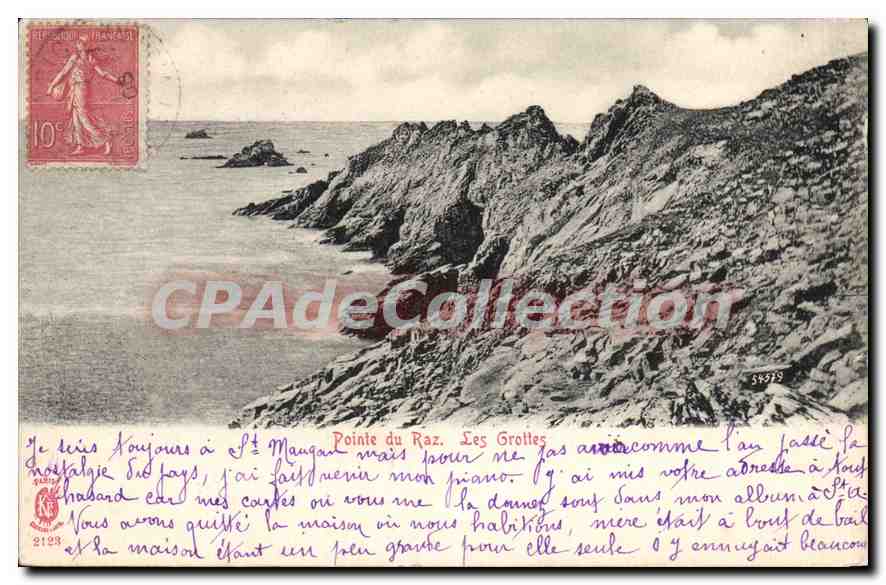 REPUBLIQUE FRANÇAISE
10c POSTES
CPAdeCollection
54579
Pointe du Raz. Les Grottes
Je suis toujours à St Maugan mais pour ne pas avoir comme l'an passé la
nostalgie du pays, j'ai fait venir mon piano. J'ai mis votre adresse à tout
hasard car mes cartes où vous me la donnez sont dans mon album à St A-
Nous avons quitté la maison où nous habitions, mère était à bout de bail
et la maison étant un peu grande pour elle seule s'y ennuyait beaucoup
PARIS
2123